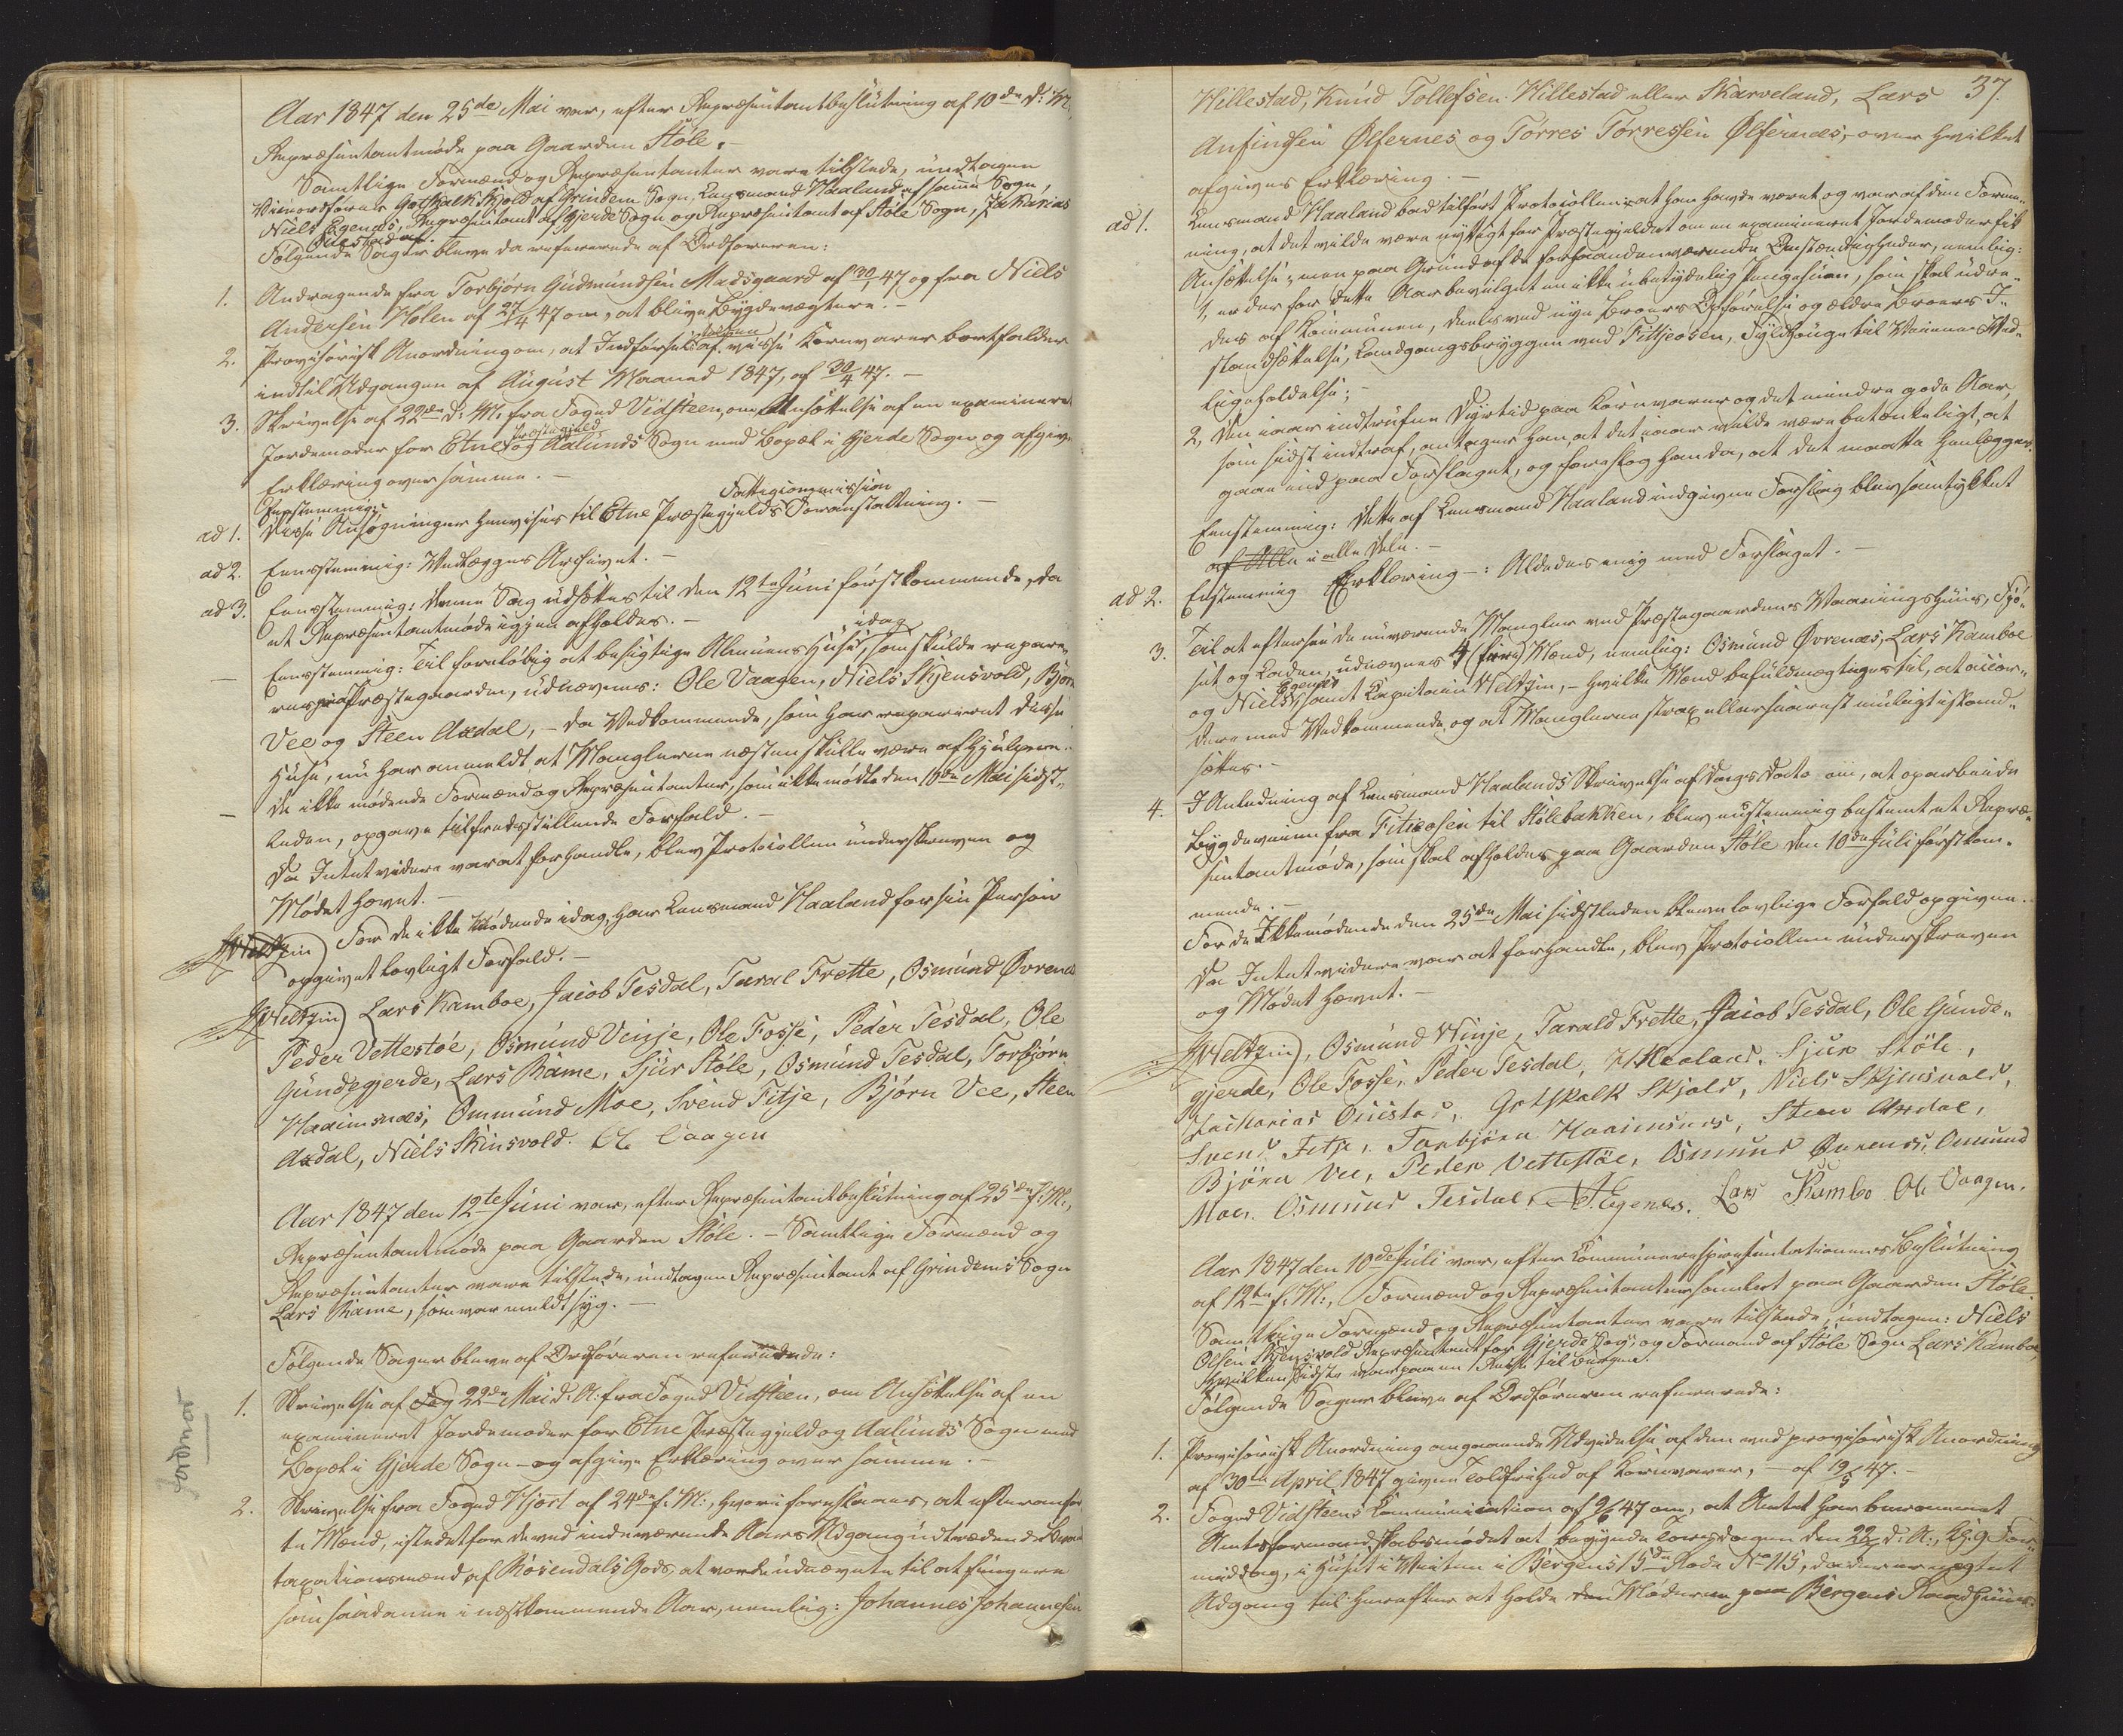 Aar 1847 den 25de Mai var, efter Repræsentantbeslutning af 10de d: M.,
Repræsentantmøde paa Gaarden Støle. –
Samtlige Formænd og Repræsentanter vare tilstede, undtagen
Viceordfører Gotskalk Skjold af Grindem Sogn, Lensmand Haaland af samme Sogn,
Niels Egenæs, Repræsentant af Gjerde Sogn og Repræsentant af Støle Sogn, Zakarias
Øiestad
Følgende Sager bleve da refererede af Ordføreren:
1. Andragende fra Torbjørn Gudmundsen Madsgaard af 30/4 47 og fra Niels
Andersen Molen af 27/4 47 om, at blive Bygdevægtere. –
2. Provisorisk Anordning om, at Indførselstolden af visse Kornvarer bortfalder
indtil Udgangen af August Maaned 1847, af 30/4 47. –
3. Skrivelse af 22de d: M. fra Foged Vidsteen, om Ansættelse af en examineret
Jordemoder for Etne Præstegjeld og Aalunds Sogn med Bopæl i Gjerde Sogn og afgive
Erklæring over samme. –
ad 1. Eenstemmig: Disse Ansøgninger henvises til Etne Præstegjelds Fattigcommission Foranstaltning. –
ad 2. Eenstemmig: Vedlægges Archivet. –
ad 3. Eenstemmig: Denne Sag udsættes til den 12te Juni førstkommende, da
et Repræsentantmøde igjen afholdes. –
– Eenstemmig: Til foreløbig at besigtige Almuens Huse idag, som skulde repare-
res paa Præstegaarden, udnævnes: Ole Vaagen, Niels Skjensvold, Bjørn
Vee og Steen Axdal, – da Vedkommende, som har repareret disse
Huse, nu har anmeldt at Manglerne næsten skulle være afhjulpene.
– De ikke mødende Formænd og Repræsentanter, som ikke mødte den 10de Mai sidst-
leden, opgave tilfredsstillende Forfald. –
Da Intet videre var at forhandle, blev Protocollen underskreven og
Mødet hævet. –
Weltzin) For de ikke Mødende idag, har Lensmand Haaland for sin Person
opgivet lovligt Forfald. –
Weltzin) Lars Kamboe, Jacob Tesdal, Taral Frette, Osmund Øvrenæs
Peder Vettestøe, Osmund Vinje, Ole Fosse, Peder Tesdal, Ole
Gundegjerde, Lars Rame, Sjur Støle, Osmund Tesdal, Torbjørn
Haaimsnæs, Ommund Moe, Svend Fitje, Bjørn Vee, Steen
Axdal, Niels Skinsvold. Ole Vaagen
Aar 1847 den 12te Juni var, efter Repræsentantbeslutning af 25de f: M.,
Repræsentantmøde paa Gaarden Støle. – Samtlige Formænd og
Repræsentanter vare tilstede, undtagen Repræsentant af Grindems Sogn
Lars Rame, som var meldt syg. –
Følgende Sager bleve af Ordføreren refererede:
1. Skrivelse af 22de Mai d: A: fra Foged Vidsteen, om Ansættelse af en
examineret Jordemoder for Etne Præstegjeld og Aalunds Sogn med
Bopæl i Gjerde Sogn – og afgive Erklæring over samme. –
Jordmor
2. Skrivelse fra Foged Hjort af 24de f: M., hvori foreslaaes, at efteranfør-
te Mænd, istedetfor de ved indeværende Aars Udgang udtrædende
taxationsmænd af Rosendals Gods, at vorde udnævnte til at fungere
som saadanne i næstkommende Aar, nemlig: Johannes Johannesen
37.
Hillestad, Knud Tollefsen Hillestad eller Skarveland, Lars
Anfindsen Ølfernes og Torres Torressen Ølfernæs, – over hvilket
afgives Erklæring. –
ad 1. Lensmand Haaland bad tilført Protocollen: at han havde været og var af den Form-
ning, at det vilde være nyttigt for Præstegjeldet om en examineret Jordemoder fik
Ansættelse, men paa Grund af de forhaandenværende Omstændigheder, nemlig:
1, er der for dette Aar bevilget en ikke ubetydelig Pengesum, som skal udre-
des af Kommunen, deels ved nye Broers Opførelse og ældre Broers I-
standsættelse, Landgangsbryggen ved Fitjeosen, Fyldhouge til Veienes Ved-
ligeholdelse;
2, Den iaar indtrufne Dyrtid paa Kornvarer og det mindre gode Aar,
som sidst indtraf, antager han, at det iaar vilde være betænkeligt, at
gaae ind paa Forslaget, og foreslog han da, at det maatte henlægges.
Eenstemmig: Dette af Lensmand Haaland indgivne Forslag blev samtykket
af Alle i alle Dele. –
ad 2. Eenstemmig Erklæring –: Aldeles enig med Forslaget. –
3. Til at eftersee de nuværende Mangler ved Præstegaardens Vaaningshuus, Fjø-
set og Laden, udnævnes 4 (fire) Mænd, nemlig: Osmund Øvrenæs, Lars Kamboe
og Niels Egenæs, samt Kapitain Weltzin, – hvilke Mænd befuldmægtiges til, at accor-
dere med Vedkommende, og at Manglerne strax eller snarest muligt istand-
sættes. –
4. I Anledning af Lensmand Haalands Skrivelse af Dags Dato om, at oparbeide
Bygdeveien fra Fitjeosen til Stølebakken, blev eenstemmig bestemt et Repræ-
sentantmøde, som skal afholdes paa Gaarden Støle den 10de Juli førstkom-
mende. –
For de Ikkemødende den 25de Mai sidstleden bleve lovlige Forfald opgivne.
Da Intet videre var at forhandle, blev Protocollen underskreven
og Mødet hævet. –
Weltzin), Osmund Winje, Tarald Frette, Jacob Tesdal, Ole Gunde-
gjerde, Ole Fosse, Peder Tesdal, Haaland. Sjur Støle,
Zacharias Øiestad, Gotskalk Skjold, Niels Skjensvold,
Svend Fitje, Torbjørn Haaimsnes, Steen Axdal,
Bjørn Vee, Peder Vettestøe, Osmund Øvrenæs, Ommund
Moe. Osmund Tesdal, N Egenæs. Lars Kambo Ole Vaagen.
Aar 1847 den 10de Juli var, efter Kommunerepræsentationens Beslutning
af 12te f: M., Formænd og Repræsentanter samlet paa Gaarden Støle.
Samtlige Formænd og Repræsentanter vare tilstede, undtagen: Niels
Olsen Skjensvold Repræsentant for Gjerde Sogn, og Formand af Støle Sogn Lars Kamboe,
hvilken sidste var paa en Reise til Bergen.
Følgende Sager bleve af Ordføreren refererede:
1. Provisorisk Anordning angaaende Udvidelse af den ved provisorisk Anordning
af 30te April 1847 givne Toldfrihed af Kornvarer, – af 19/5 47. –
2. Foged Vidsteens Communication af 9/6 47 om, at Amtet har berammet
Amtsformandskabsmødet at begynde Torsdagen den 22de d: M., Kl. 9 For-
middag, i Huset i Bergens 15de Rode No 115, da der er nægtet
Adgang til herefter at holde Møderne paa Bergens Raadhuus.